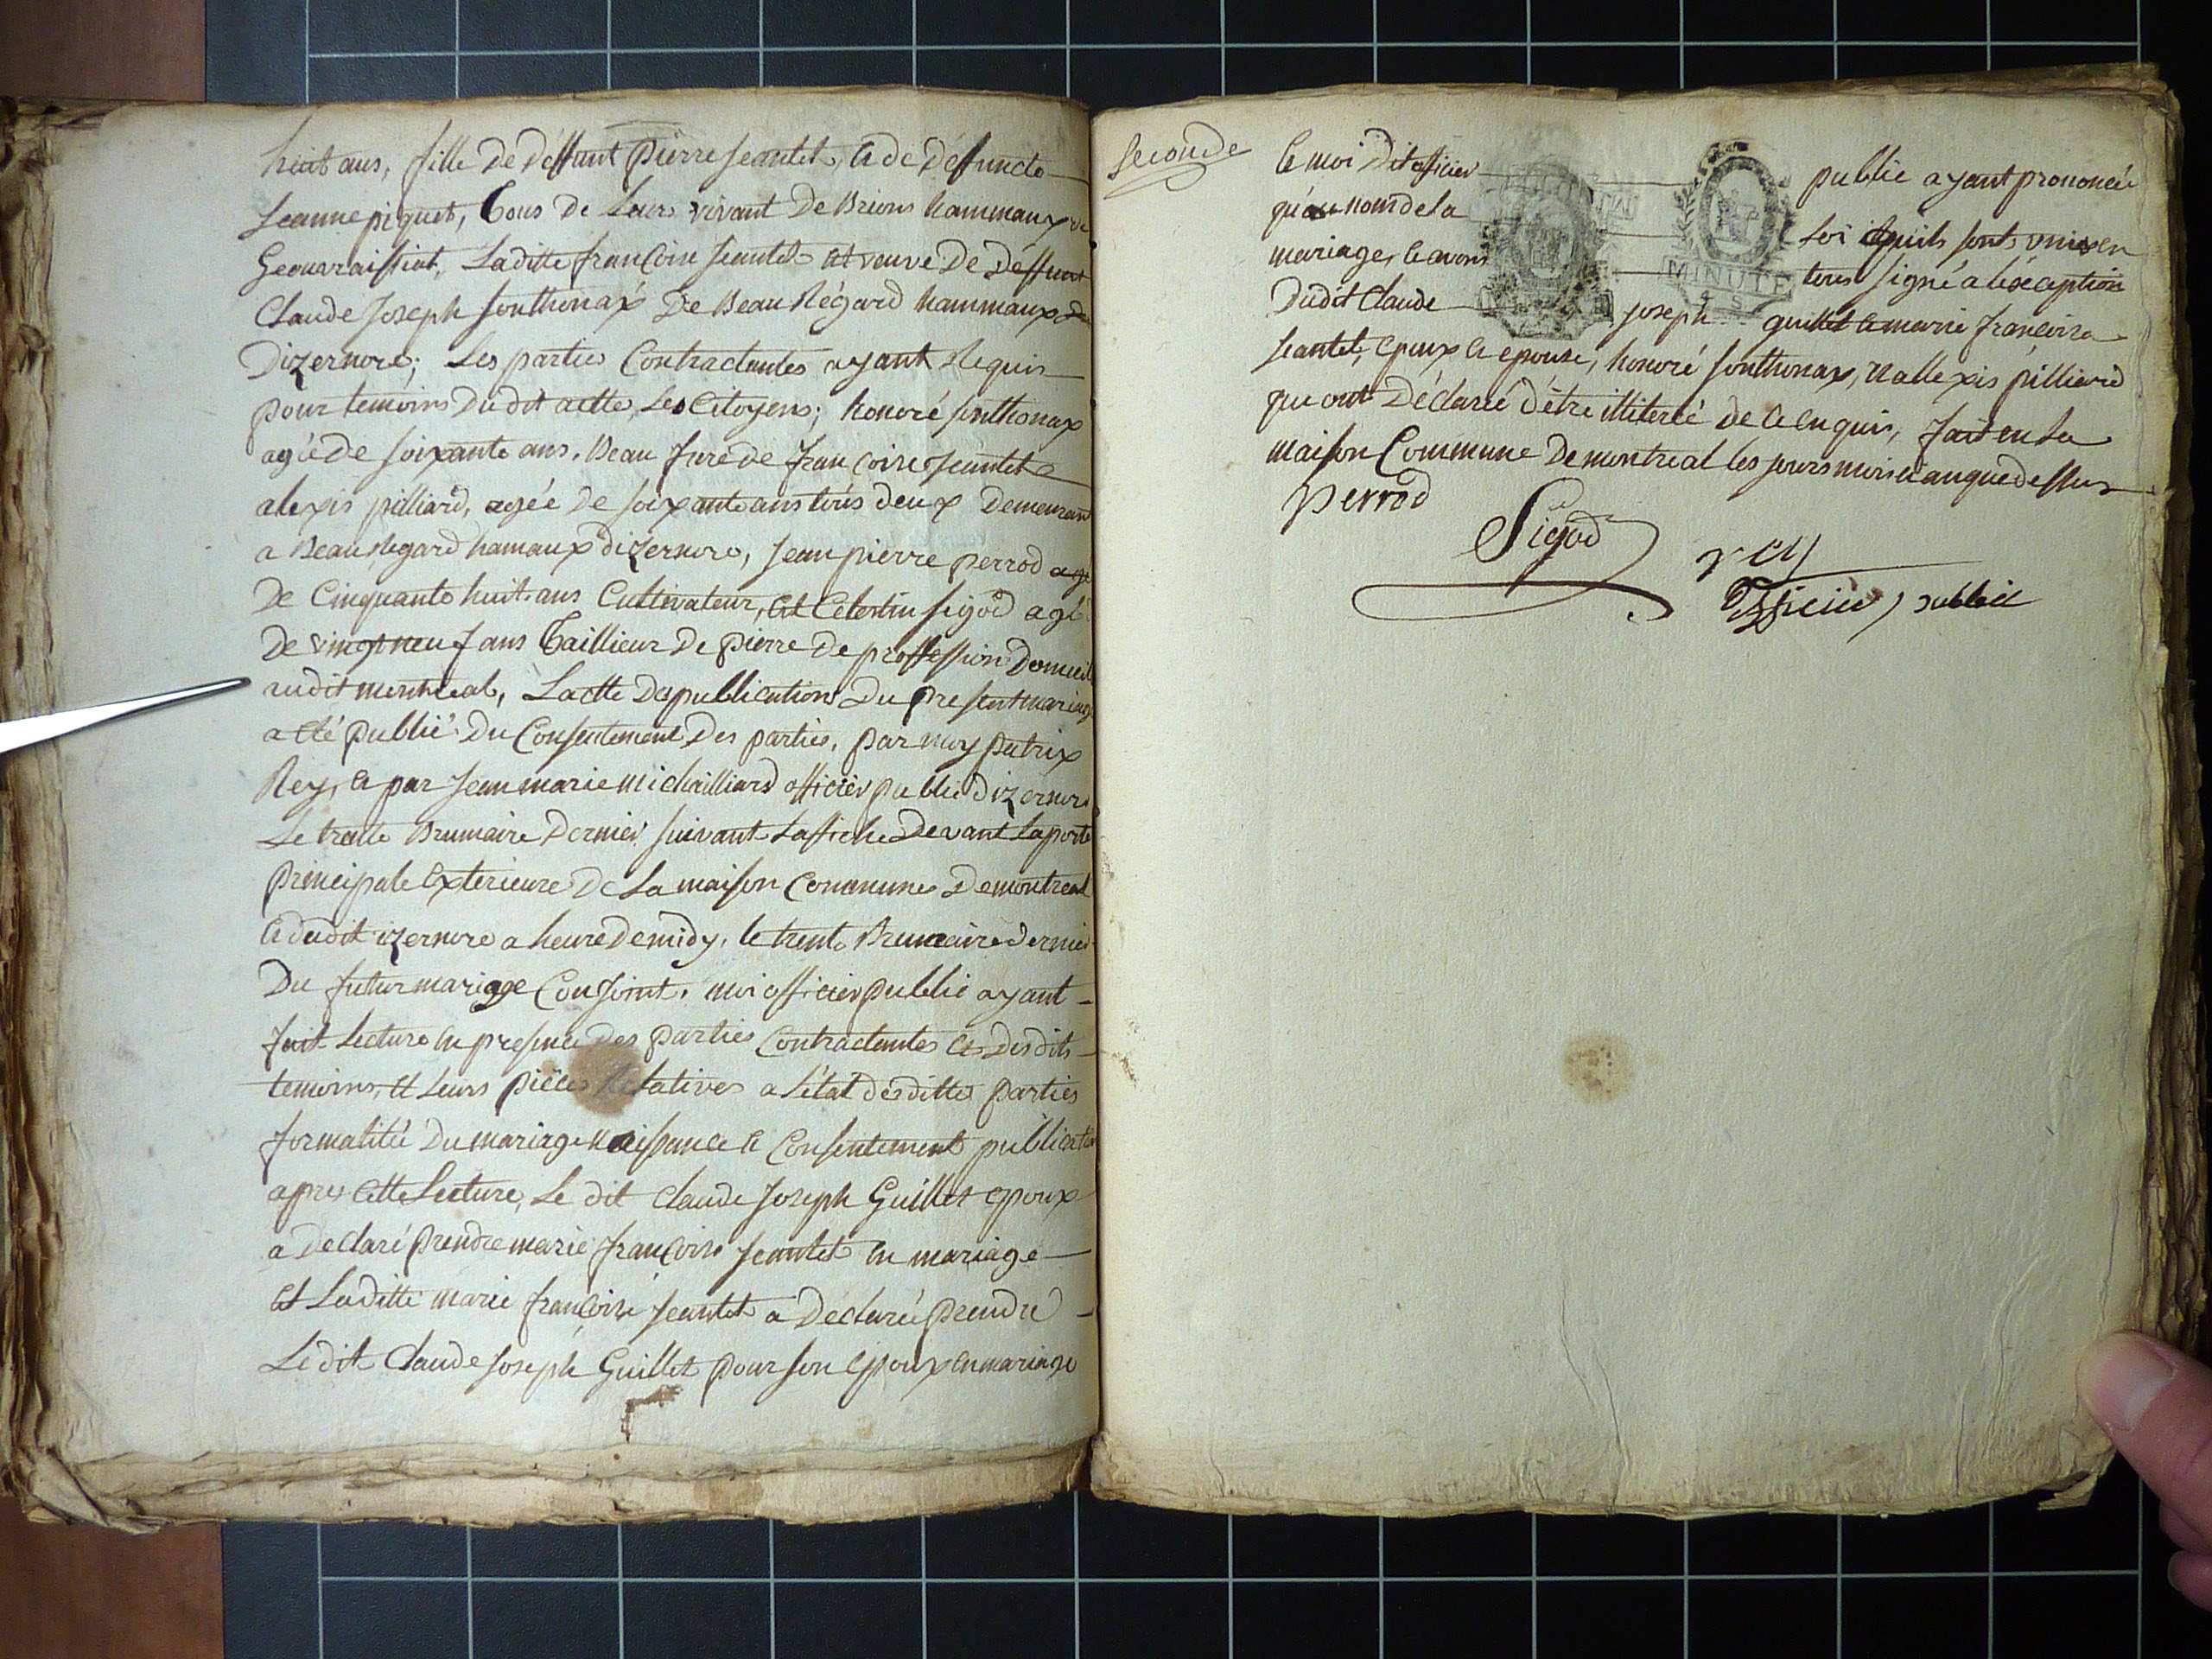 huit ans, fille de deffunt pierre jeantet, et de deffuncte
Jeanne piquet, tous de Leurs vivant de Brions hammaux de
Geouvraissiat, Laditte francoise jeantet est veuve de deffunt
Claude joseph sonthonax de Beau Régard hammaux
Dizernore; Les parties Contractantes ayant Requis
pour temoins dudit actte, Les Citoyens; honoré sonthonax
agée de soixante ans. Beau frere de francoise jeantet
alexis pilliard, agée de soixante ans tous deux Demeurant
a Beau Regard hamaux dizernore, jean pierre perrod agé
De Cinquante huit ans Cultivateur, et Celestin sigod agé
De vingt neuf ans tailleur De pierre De proffession
audit montreal, Lactte de publication Du present mariage
a été publié du Consentement Des parties, par moy patrix
Rey, et par jean marie michailliard officier public dizernore
Le trente Brumaire Dernier suivant Laffiche Devant Laporte
principale Exterieure De La maison Commune De montreal
et dudit izernore a heure de midy, le trente Brumaire dernier
Du futur mariage Conjoint, moi officier public ayant
fait Lecture en presence des parties Contractantes et desdits
temoins, et Leurs pièces Relatives a L'état desdittes parties
formalitée Du mariage naissance et Consentement publication
apres Cette Lecture, Le dit Claude Joseph Guillet epoux
a declaré prendre marie francoise jeantet en mariage
et Laditte marie francoise jeantet a Déclarée prendre
Ledit Claude joseph Guillet pour son epoux en mariage
Seconde
et moi dit officier public ayant prononcée
qu'au nom de la Loi quils sont unis en
mariage, et avons tous signé a léxception
dudit Claude joseph guillet et marie francoise
jeantet, epoux et epouse, honoré sonthonax, et allexis pilliard
qui ont Déclarée d'être illiterée de ce enquis, fait en La
maison Commune De montreal les jours mois et an que dessus
MINUTE
perrod
Sigod
Rey
Officier public